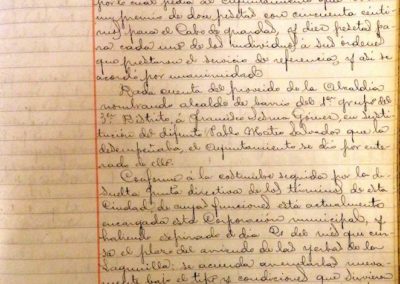 por lo cual pedía al Ayuntamiento que
un premio de doce pesetas con cincuenta cénti-
mos para el Cabo de guardas, y diez pesetas pa-
ra cada uno de los individuos a sus ordenes
que prestaron el servicio de referencia, y así se
acordó por unanimidad
Dada cuenta del proveido de la Alcaldía
nombrando alcalde de barrio del 1er grupo del
3er Distrito, á Francisco Gómez, en susti-
tución del difunto Pablo Mateo Salvador que lo
desempeñaba, el Ayuntamiento se dió por ente-
rado de ello.
Conforme á la costumbre seguida por la di-
suelta Junta directiva de los términos de esta
Ciudad, de cuyas funciones está actualmente
encargada esta Corporación municipal, y
habiendo espirado el día de del mes que cur-
sa el plazo del arriendo de las yerbas de la
Lagunilla: se acuerda arrendarlas nueva-
mente bajo el tipo y condiciones que sirvieron